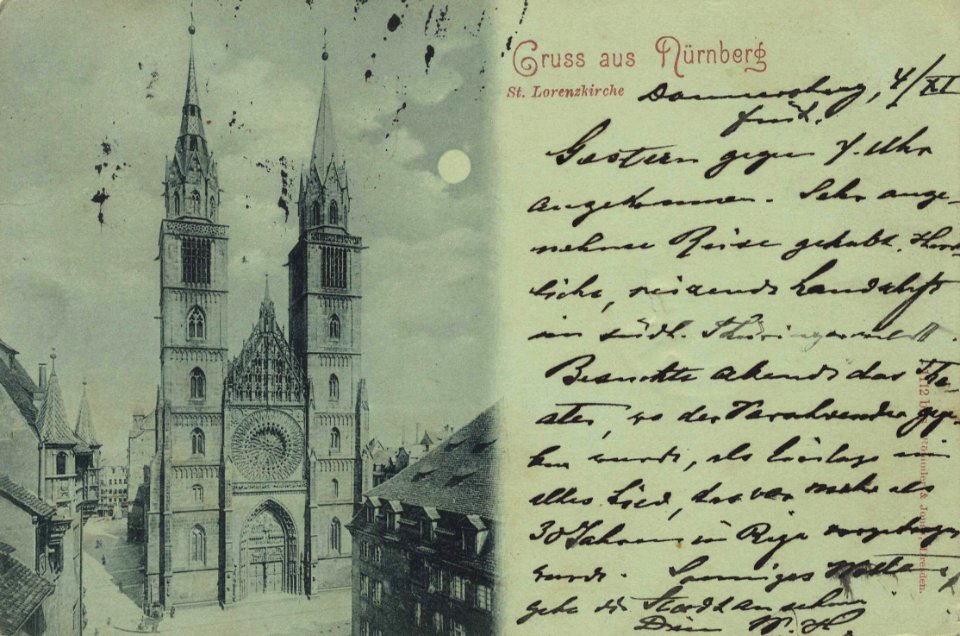 Gruss aus Nürnberg
St. Lorenzkirche
Donnerstag, 4/XI
früh.
Gestern gegen 7. Uhr
angekommen. Sehr ange-
nehme Reise gehabt. Herr-
liche, reizende Landschft
im südl. Thüringerwald.
Besuchte abends das The-
ater, wo der Verschwender gege-
ben wurde, als Einlage ein
altes Lied, das vor mehr als
30 Jahren in Riga vorgetragen
wurde. Sonniges
gehe die Stadt ansehen
Dein W. H